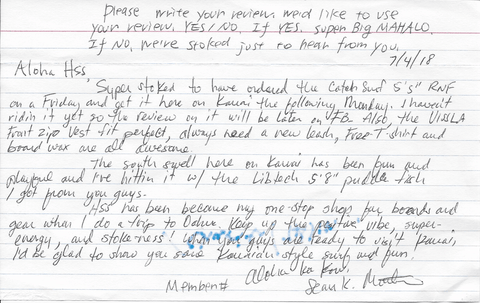 Please write your review. we'd like to use
your review. YES/NO. If YES. super Big MAHALO.
If NO, we're stoked just to hear from you.
7/4/18
Aloha HSS,
Super stoked to have ordered the Catch Surf 5'5" RNF
on a Friday and get it here on Kauai the following Monday. I haven't
ridin it yet so the review on it will be later on FB. Also, the VISSLA
Front zip Vest fit perfect, always need a new leash, Free T-shirt and
board wax are all awesome.
The south swell here on Kauai has been fun and
playful and I've hittin it w/ the Libtech 5'8" puddle fish
I got from you guys.
HSS has been became my one-stop shop for boards and
gear when I do a trip to Oahu. Keep up the positive vibe, super-
energy, and stoke-ness! When you guys are ready to visit Kauai,
I'd be glad to show you some Kauaian style surf and fun!
Aloha
Member# Sean K.